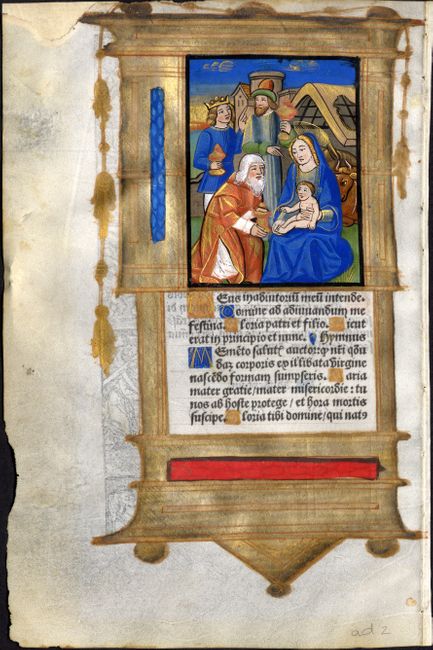 Eus in adiutoriū meū intende.
Domine ad adiuuandum me
festina. Gloria patri et filio. Sicut
erat in principio et nunc. Hymnus
MEmēto salut̄ auctor ꝙ nr̄i qōn
dā corporis ex illibata virgine
nascēdo formam sumpseris. Maria
mater gratie/mater misericordie: tu
nos ab hoste protege/et hora mortis
suscipe. Gloria tibi domine/qui natꝰ
ad 2